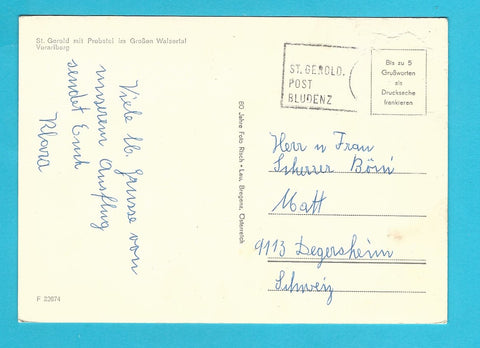 St. Gerold mit Propstei im Großen Walsertal
Vorarlberg
Viele lb. Grüsse von
unserem Ausflug
sendet Euch
Klara
F 22874
60 Jahre Foto Risch-Lau, Bregenz, Österreich
ST. GEROLD.
POST
BLUDENZ
Bis zu 5
Grußworten
als
Drucksache
frankieren
Herr u Frau
Scherrer Böni
Matt
9113 Degersheim
Schweiz